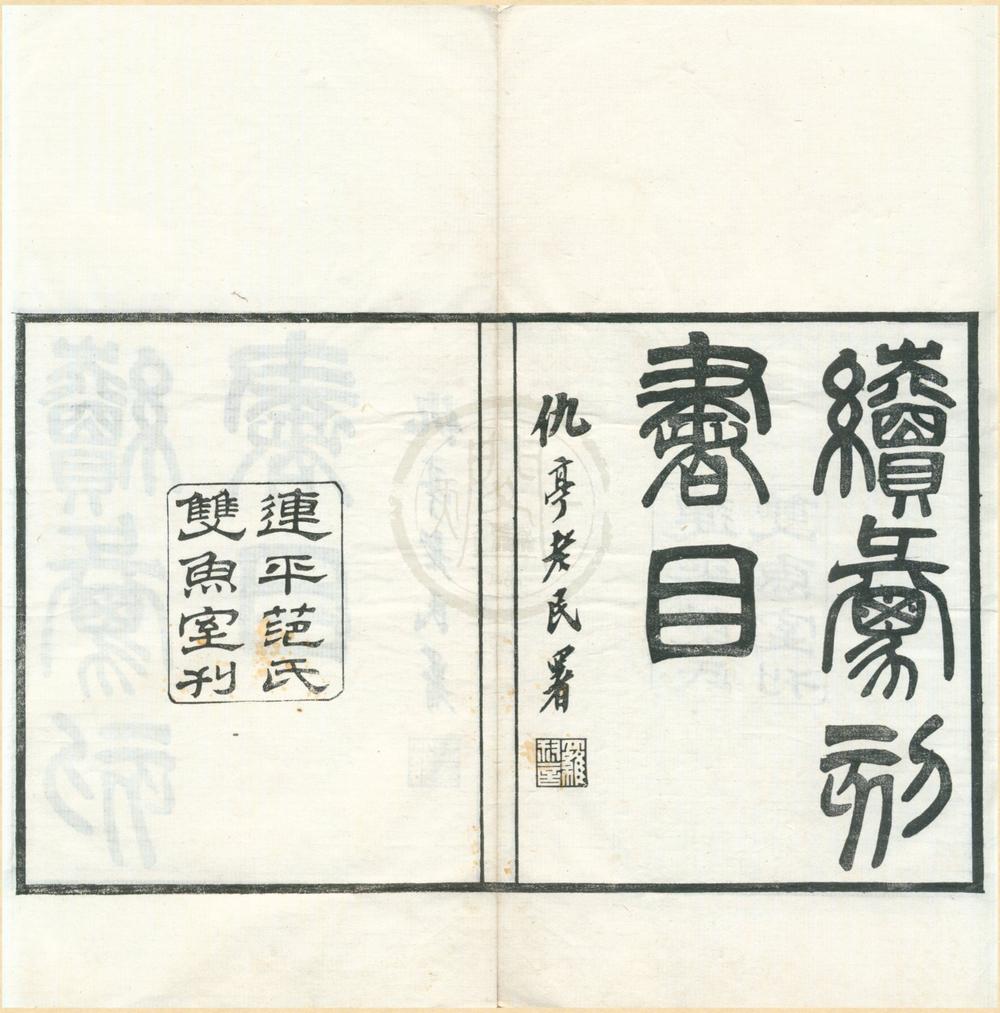 續彙刻
書目
仇亭老民署
連平范氏
雙魚室刊